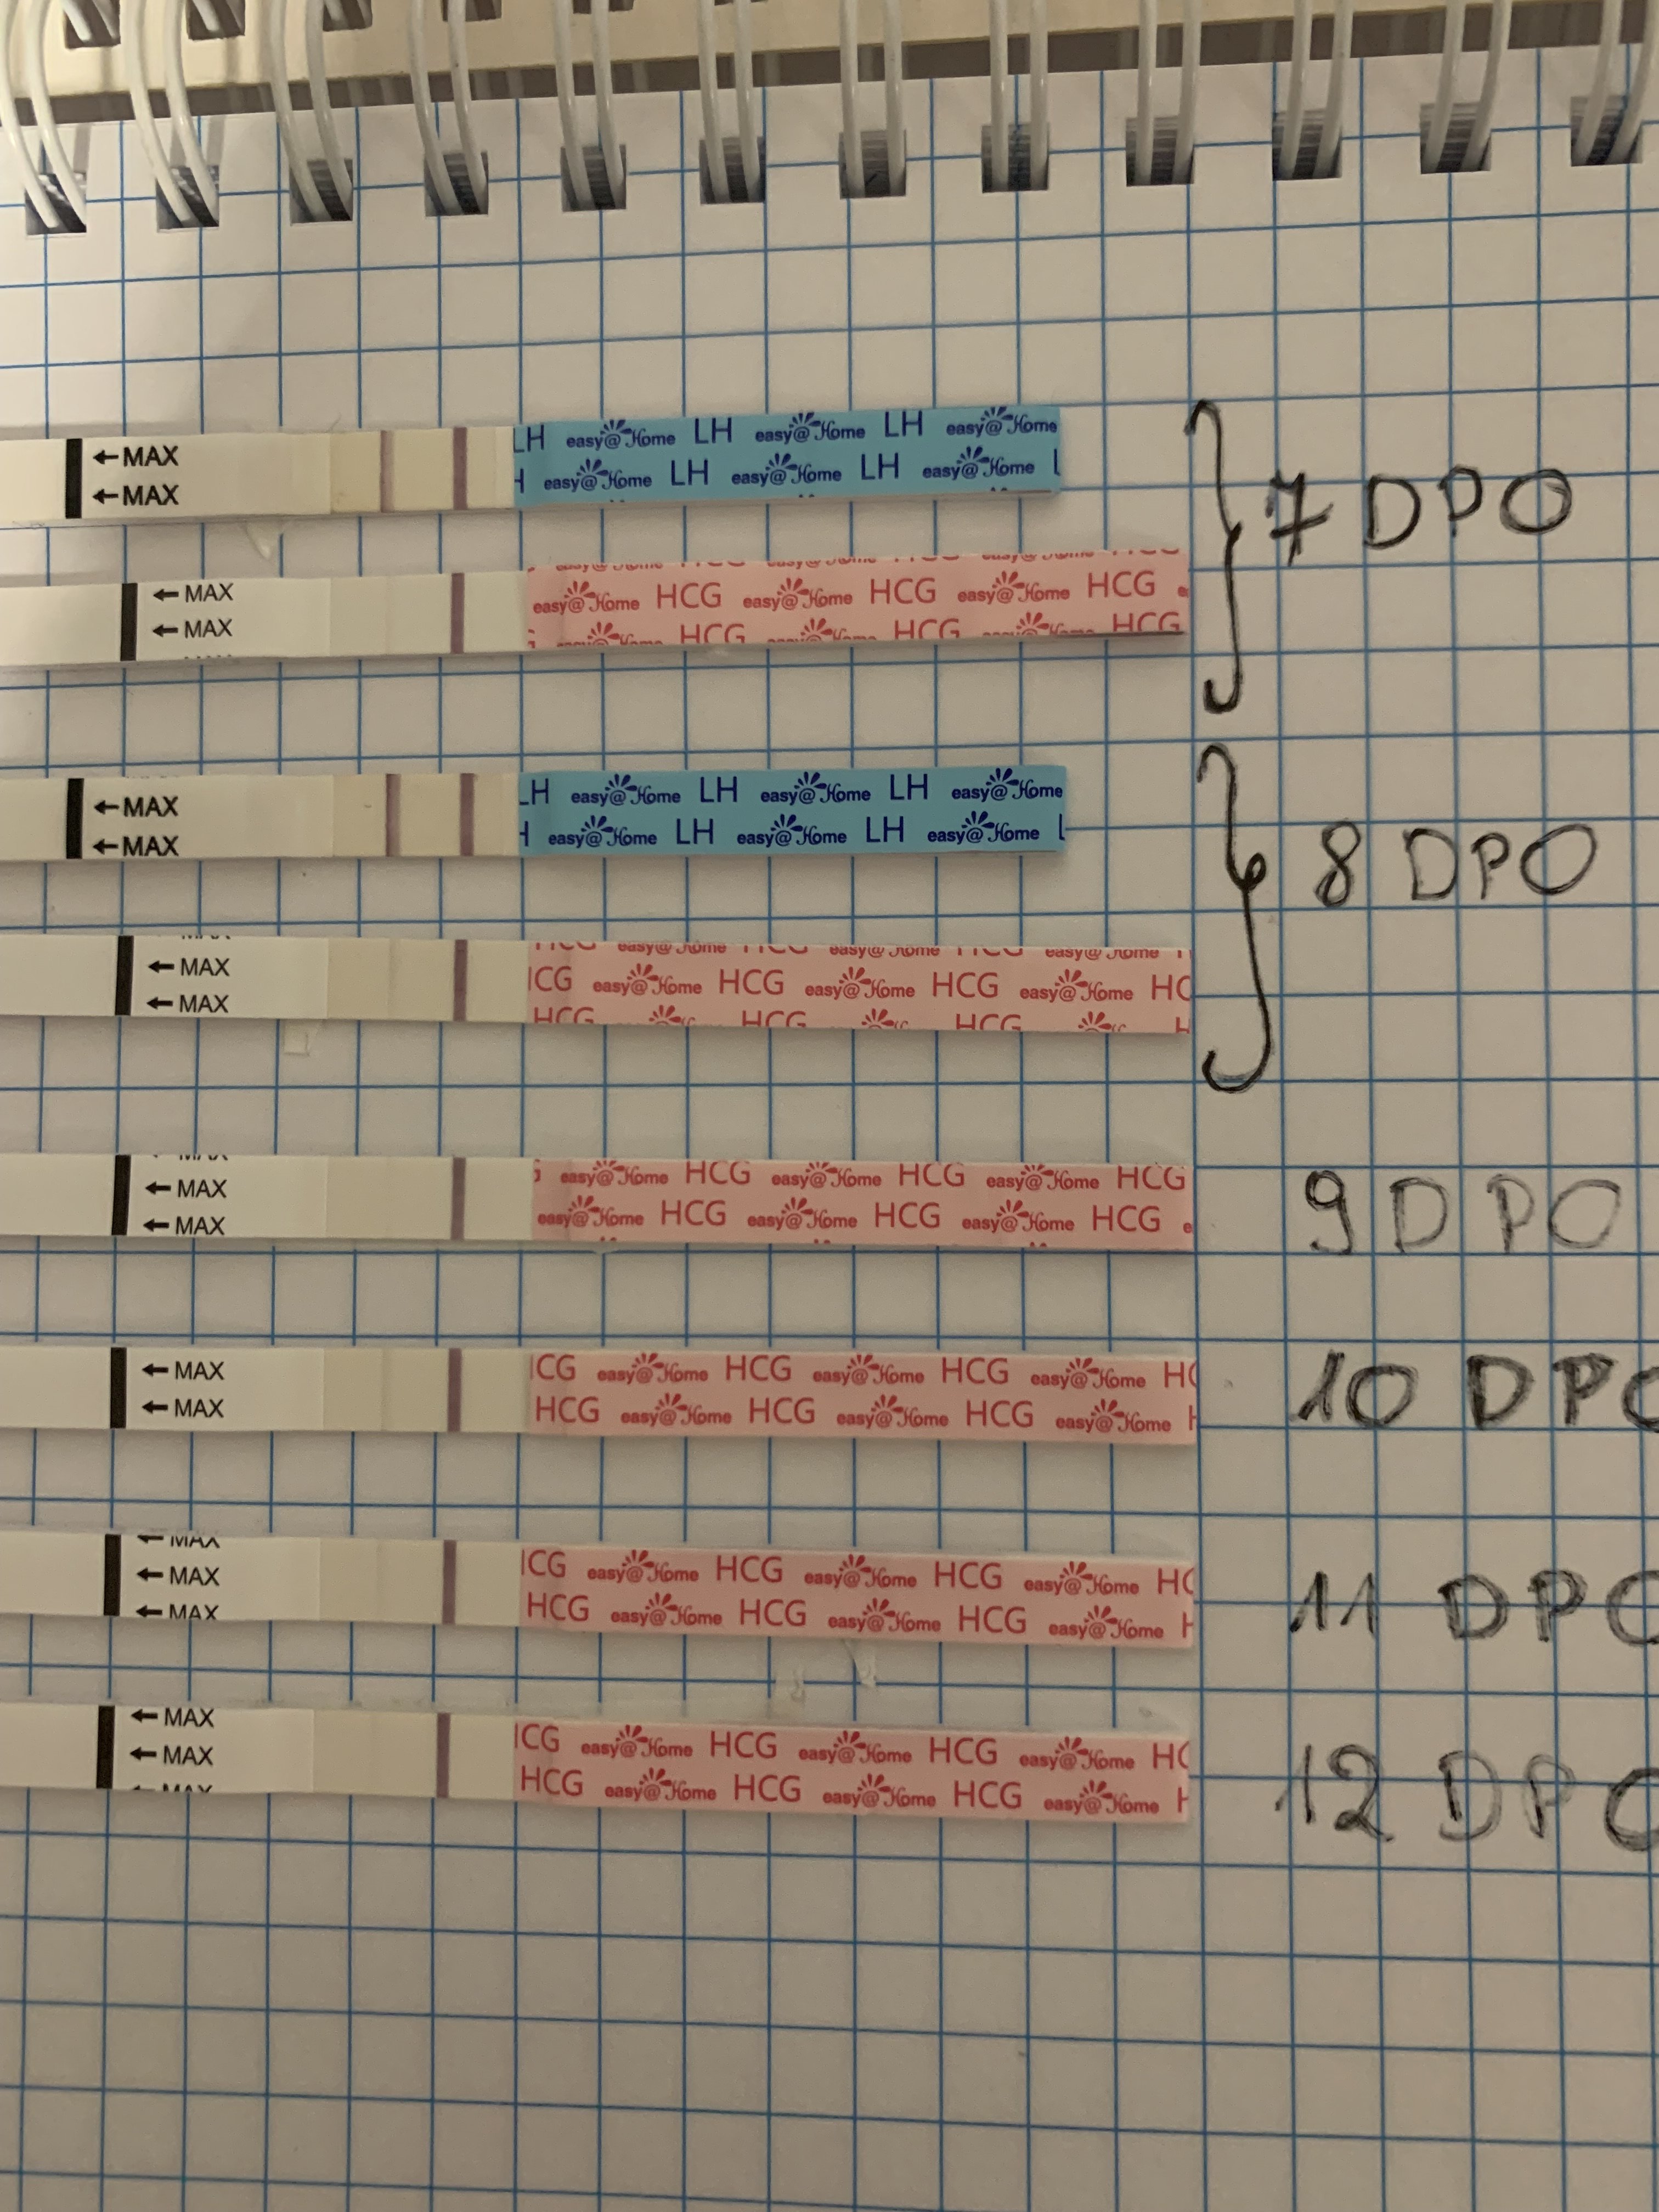 LH easy@Home LH easy@Home LH easy@Home
←MAX
←MAX
easy@Home LH easy@Home LH easy@Home
7 DPO
←MAX
easy@Home HCG easy@Home HCG easy@Home HCG
←MAX
HCG HCG HCG
LH easy@Home LH easy@Home LH easy@Home
←MAX
←MAX
easy@Home LH easy@Home LH easy@Home
8 DPO
HCG easy@Home HCG easy@Home HCG easy@Home
←MAX
HCG easy@Home HCG easy@Home HCG easy@Home HC
←MAX
HCG HCG HCG
MAX
easy@Home HCG easy@Home HCG easy@Home HCG
←MAX
←MAX
easy@Home HCG easy@Home HCG easy@Home HCG
9 DPO
←MAX
ICG easy@Home HCG easy@Home HCG easy@Home HC
←MAX
HCG easy@Home HCG easy@Home HCG easy@Home
10 DPO
←MAX
←MAX
ICG easy@Home HCG easy@Home HCG easy@Home HC
←MAX
HCG easy@Home HCG easy@Home HCG easy@Home
11 DPO
←MAX
←MAX
ICG easy@Home HCG easy@Home HCG easy@Home HC
MAX
HCG easy@Home HCG easy@Home HCG easy@Home
12 DPO